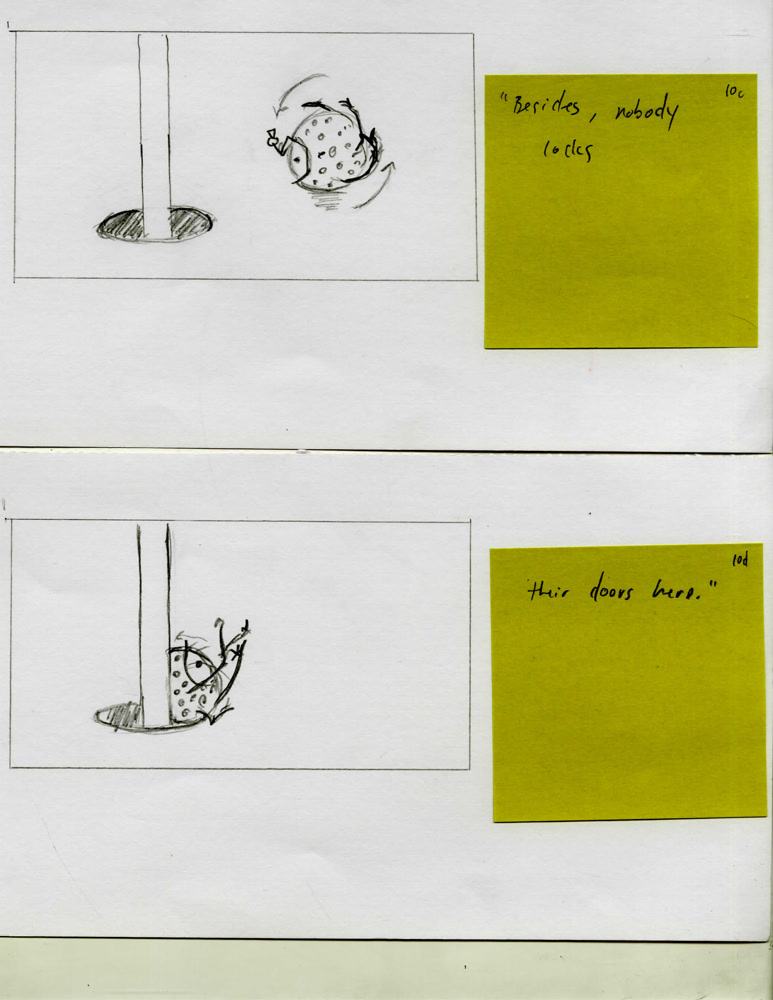 10c
"Besides, nobody
locks
10d
their doors here."